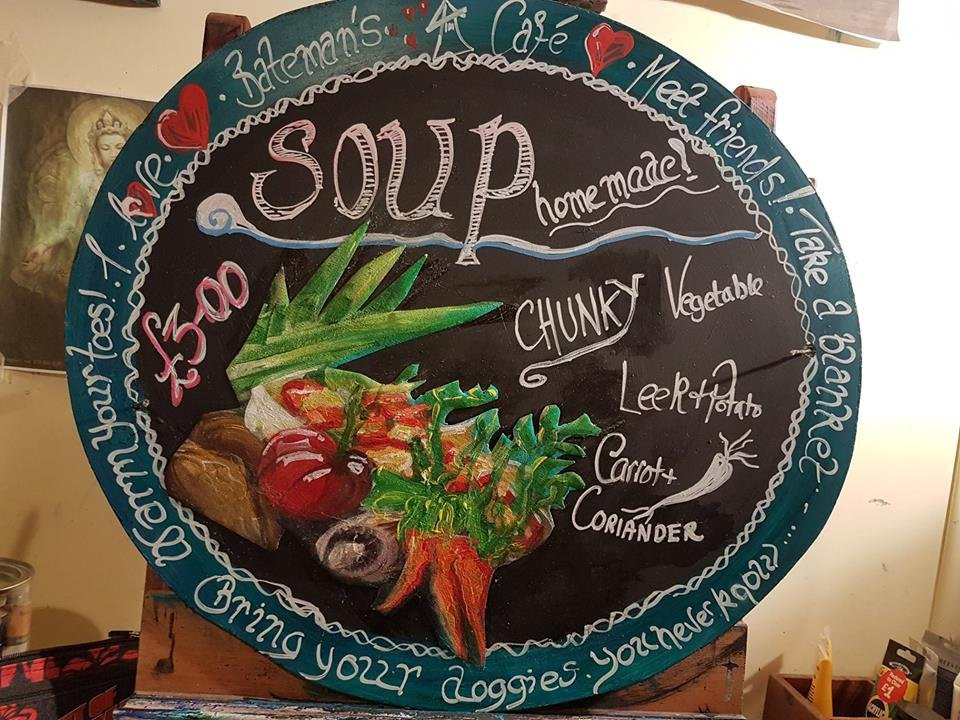 . Bateman's . Café . Meet friends! . Take a blanket .... you never know
Bring your doggies.
Warm your toes! . I . love .
Soup
homemade!
£3.00
CHUNKY Vegetable
Leek + Potato
Carrot +
CORIANDER
£1